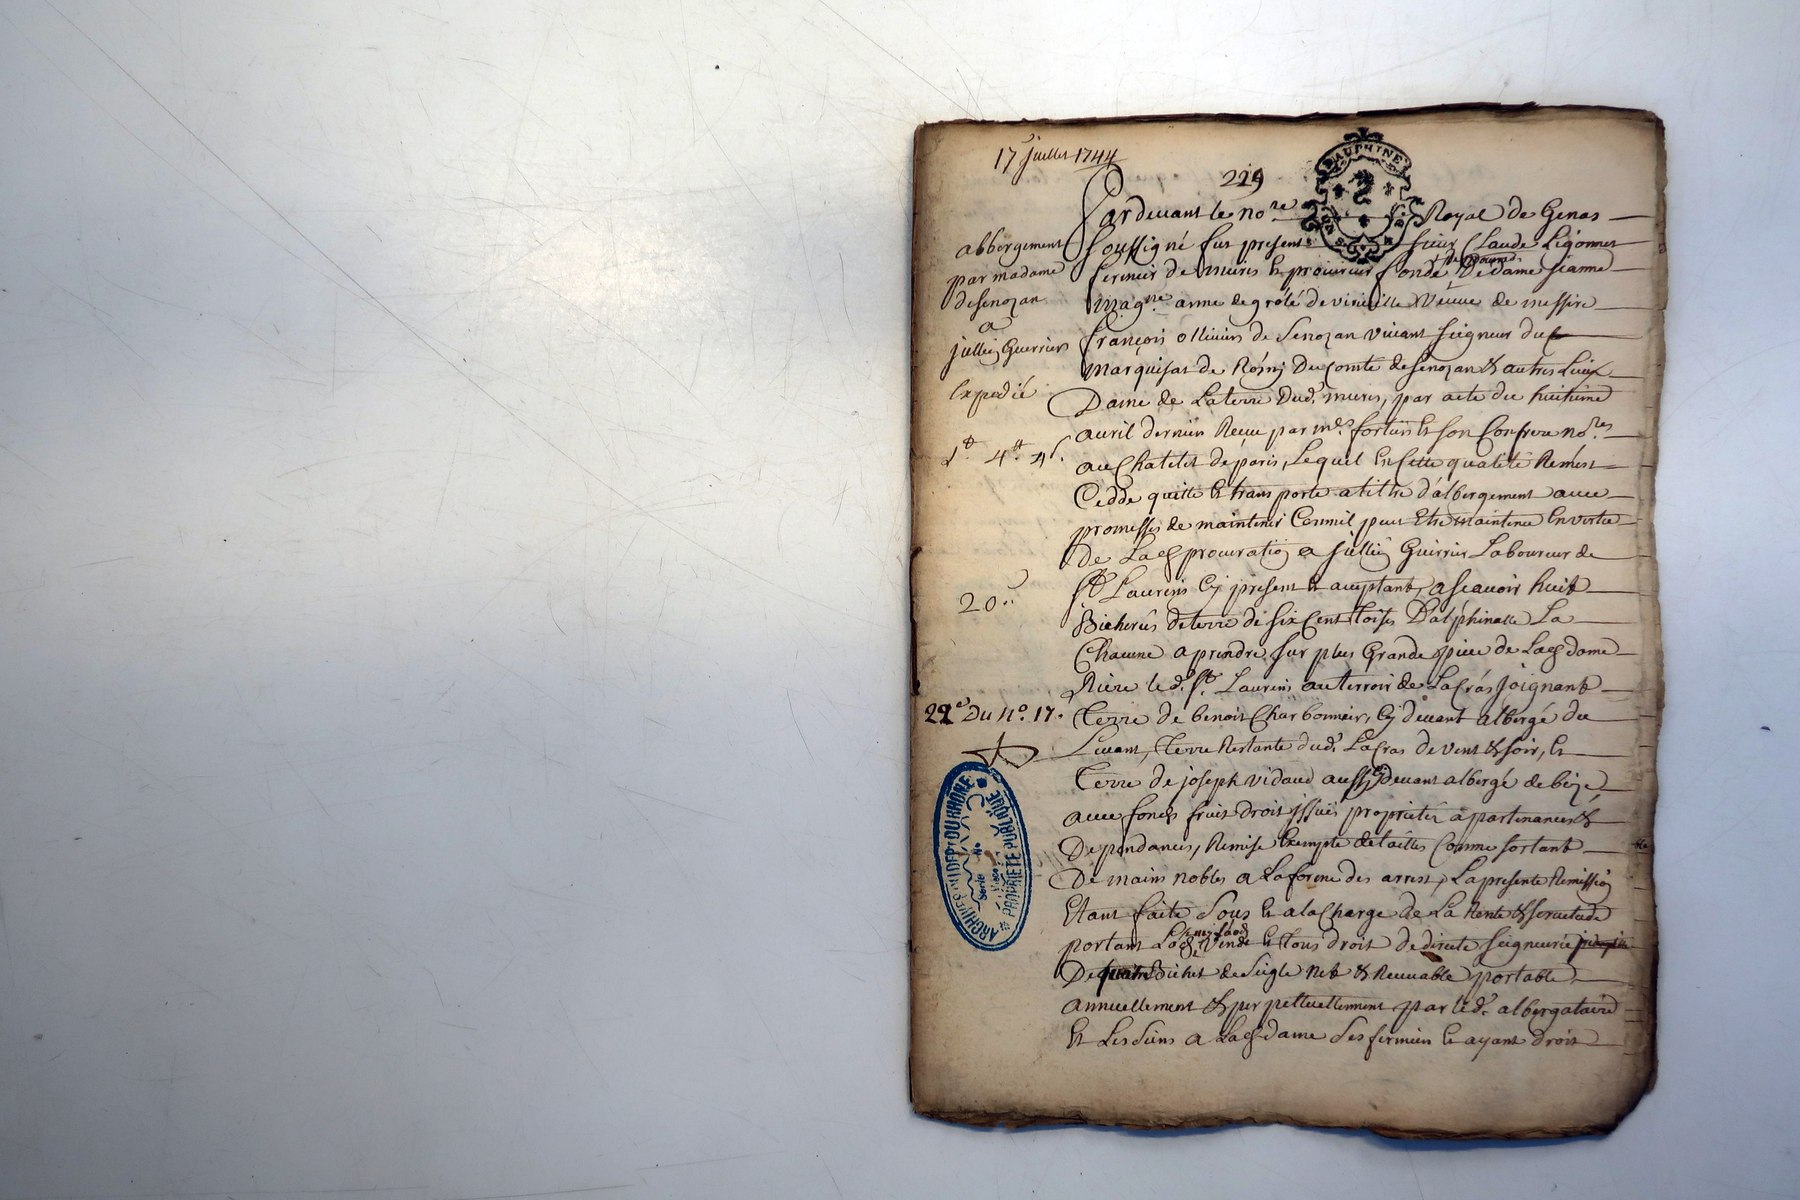 17 juillet 1744
219
DAUPHINÉ
Pardevant le no.re Royal de Genas
Soussigné fut present sieur Claude Ligonnet
fermier de mures et procureur fondé de dame jeanne
Magne anne de groleé de virieville veuve de messire
françois ollivier de Senozan vivant seigneur du
marquisat de Rosny Du Comté de senozan & autres Lieux
Dame de La terre Dud. mures, par acte du huitieme
avril dernier Reçu par me fortier et son Confrere no.res
au Chatelet de paris, Lequel En cette qualité Remest
Cedde quitte et transporte a titre d'albergement avec
promesse de maintenir Comme il peut Etre maintenu En vertu
de Lad procuration a jullien Guerrier Laboureur de
St Laurens Cy present et acceptant, a scavoir huit
Bicherées de terre de six Cent toises Dalphinalle La
Chacune a prendre sur plus Grande piece de Lad dame
Riere led. St. Laurens au terroir de La Cras joignant
Terre de benoit Charbonnier, Cy devant albergé du
Levant, Terre Restante dud. La Cras de vent & soir, et
Terre de joseph vidaud aussy Cy devant albergé de bize,
avec fonds fruit droit issues proprietés apartenances &
Dependances, Remise Exempte de tailles Comme sortant
De mains nobles a La forme des arrest, La presente Remission
Etant faite Sous et a la Charge de La Rente & servitude
portant Lods vende et tous droit de directe seigneurie
De quatre Bichet de Seigle Net & Recevable portable
annuellement & perpetuellement par led. albergataire
Et Les Siens a Lad dame Ses fermiers et ayant droit
abbergement
par madame
de senozan
a
jullien Guerrier
Expedié
4# 4s.
20
22e Du N.o 17.
ARCHIVES DU DEPT DU RHÔNE
Série
No
PROPRIÉTÉ PUBLIQUE